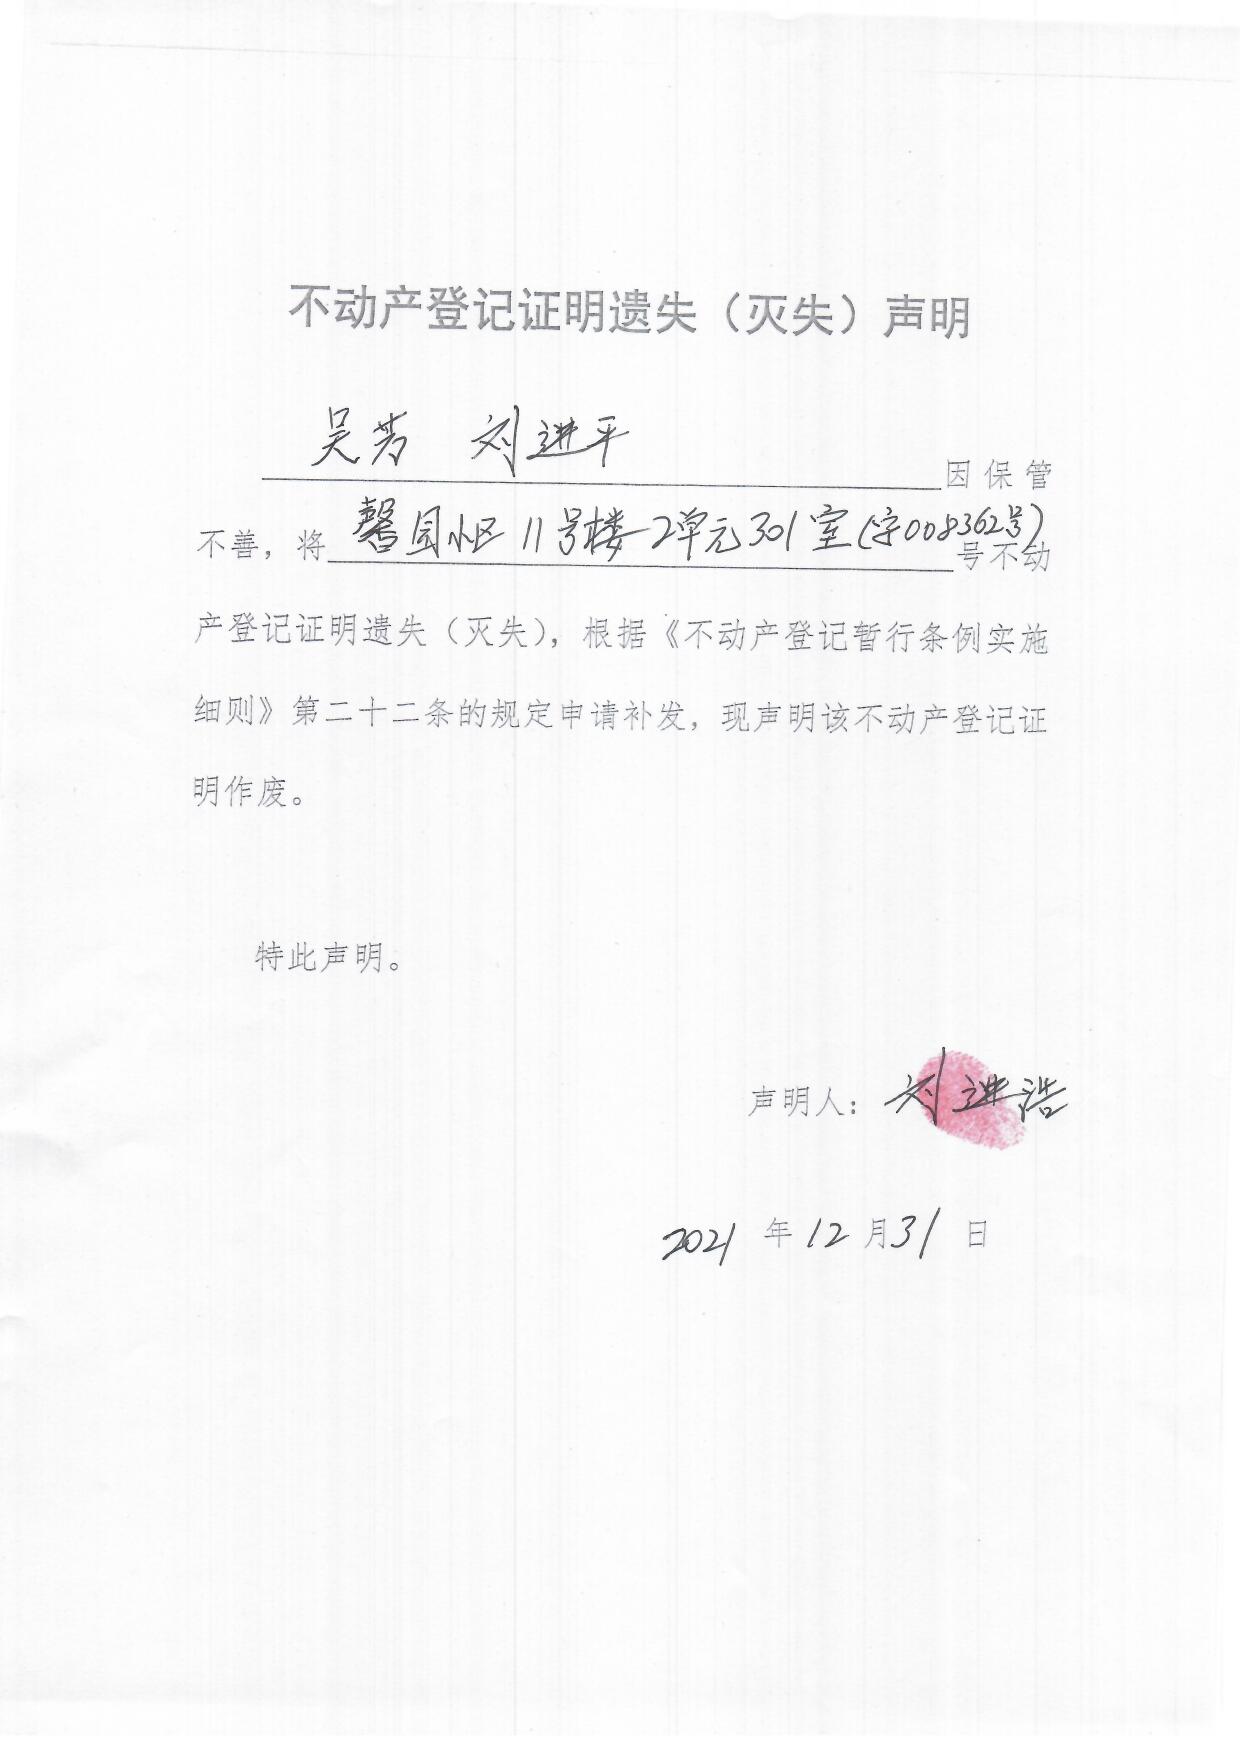 不动产登记证明遗失（灭失）声明
吴芳 刘进平
因保管
不善，将馨园小区11号楼-2单元301室(字008362号)号不动
产登记证明遗失（灭失），根据《不动产登记暂行条例实施
细则》第二十二条的规定申请补发，现声明该不动产登记证
明作废。
特此声明。
声明人：刘进浩
2021年12月31日